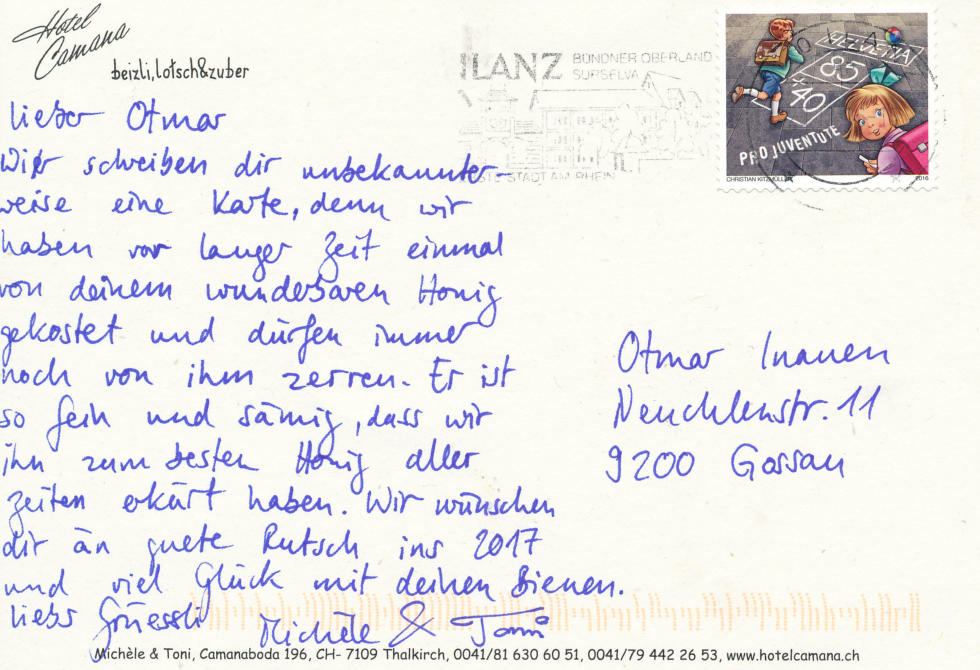 Hotel
Camana
beizli, lotsch&zuber
ILANZ
BÜNDNER OBERLAND
SURSELVA
STADT AM RHEIN
HELVETIA
85
+40
PRO JUVENTUTE
CHRISTIAN KITZMÜLLER 2016
lieber Otmar
Wir schreiben dir unbekannter-
weise eine Karte, denn wir
haben vor langer Zeit einmal
von deinem wunderbaren Honig
gekostet und dürfen immer
noch von ihm zerren. Er ist
so fein und sämig, dass wir
ihn zum besten Honig aller
Zeiten erkürt haben. Wir wünschen
dir än guete Rutsch ins 2017
und viel Glück mit deinen Bienen.
liebs Grüessli Michèle & Toni
Otmar Inauen
Neuchlenstr. 11
9200 Gossau
Michèle & Toni, Camanaboda 196, CH- 7109 Thalkirch, 0041/81 630 60 51, 0041/79 442 26 53, www.hotelcamana.ch